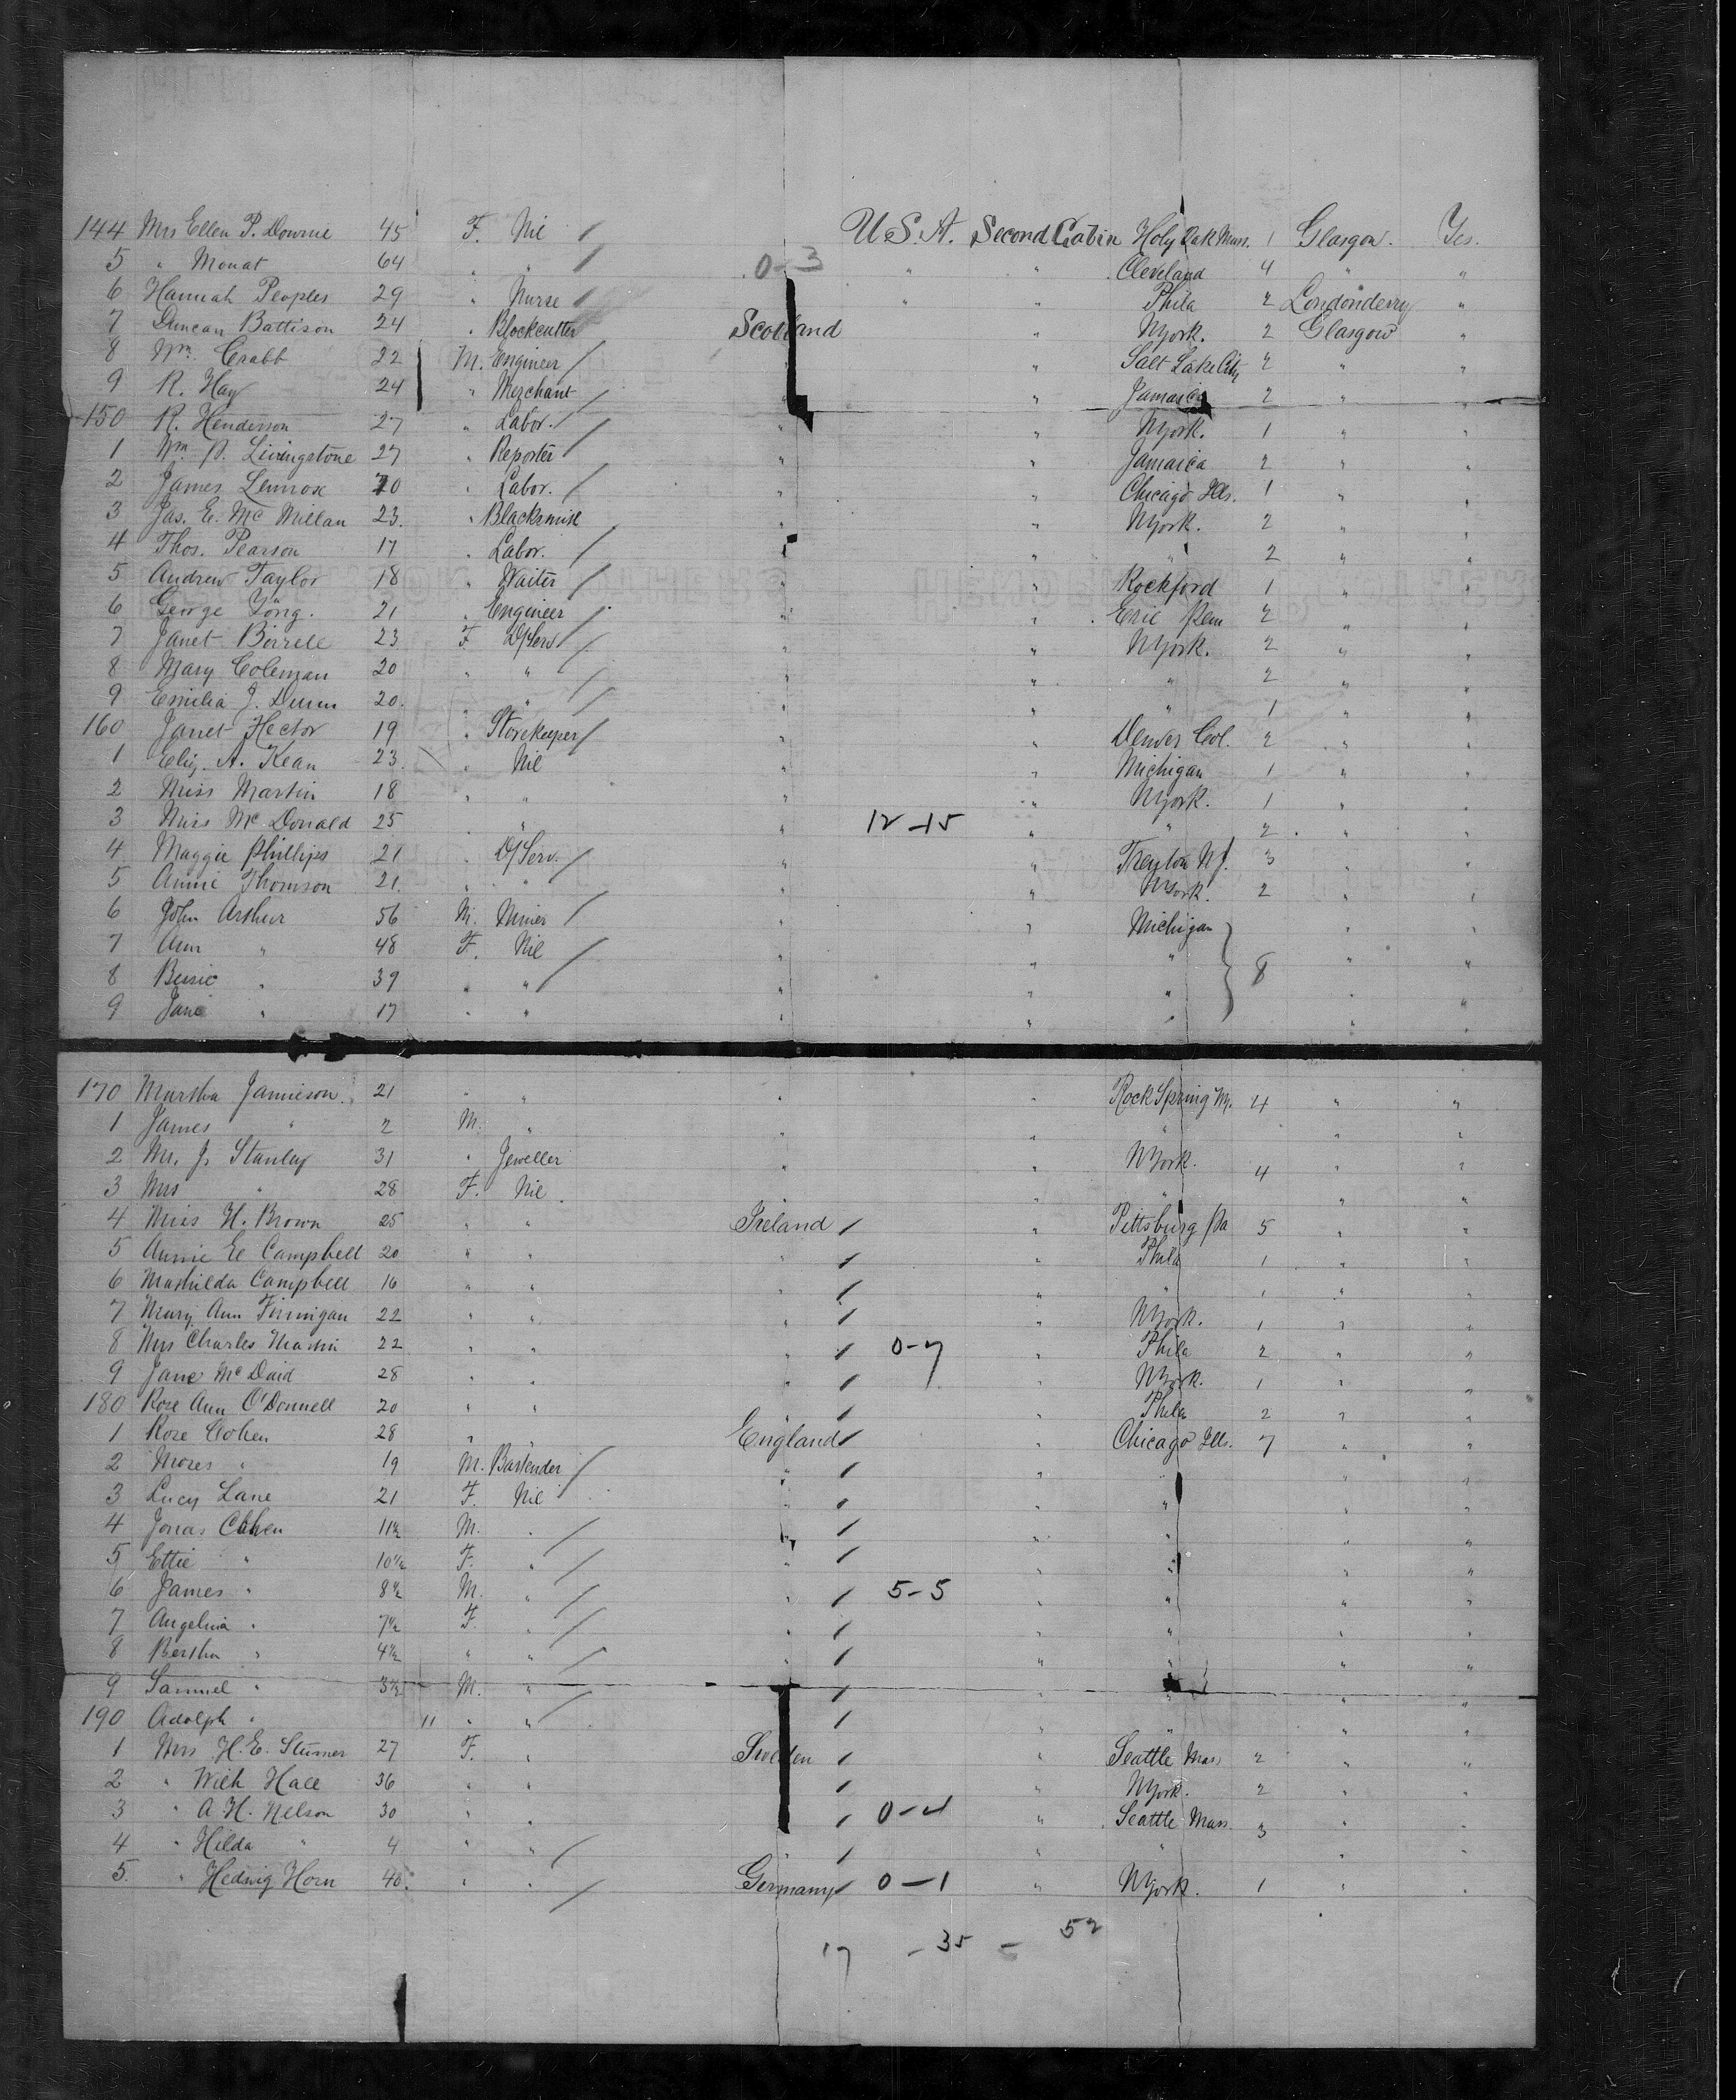 144 Mrs Ellen P. Downie 45 F. Nil U.S.A. Second Cabin Holy Oak Mass. 1 Glasgow. Yes.
5 " Mouat 64 " " 0-3 " " Cleveland 4 " "
6 Hannah Peoples 29 " Nurse " " Phila 2 Londonderry "
7 Duncan Battison 24 " Blockcutter Scotland " NYork. 2 Glasgow "
8 Wm. Crabb 22 M. Engineer " " Salt Lake City 2 " "
9 R. Hay 24 " Merchant " " Jamaica 2 " "
150 R. Henderson 27 " Labor. " " NYork. 1 " "
1 Wm. P. Livingstone 27 " Reporter " " Jamaica 2 " "
2 James Lennox 20 " Labor. " " Chicago Ills. 1 " "
3 Jas. E. McMillan 23. " Blacksmith " " NYork. 2 " "
4 Thos. Pearson 17 " Labor. " " " 2 " "
5 Andrew Taylor 18 " Waiter " " Rockford 1 " "
6 George Yöng. 21 " Engineer " " Erie Penn 2 " "
7 Janet Birrell 23 F. D/Serv " " NYork. 2 " "
8 Mary Coleman 20 " " " " " 2 " "
9 Emilia J. Dunn 20. " " " " " 1 " "
160 Janet Hector 19 " Storekeeper " " Denver Col. 2 " "
1 Eliz. A. Kean 23. " Nil " " Michigan 1 " "
2 Miss Martin 18 " " " " NYork. 1 " "
3 Miss McDonald 25 " " " 12-15 " " 2 " "
4 Maggie Phillips 21 " D/Serv. " " Trenton N.J. 3 " "
5 Annie Thomson 21. " " " " NYork. 2 " "
6 John Arthur 56 M. Miner " " Michigan " "
7 Ann " 48 F. Nil " " " 8 " "
8 Bessie " 39 " " " " " " "
9 Jane " 17 " " " " " " "
170 Martha Jamieson. 21 " " " " Rock Spring Wy. 4 " "
1 James " 2 M. " " " " " "
2 Mr. J. Stanley 31 " Jeweller " " NYork. 4 " "
3 Mrs " 28 F. Nil " " " " "
4 Miss H. Brown 25 " " Ireland " Pittsburg Pa 5 " "
5 Annie E Campbell 20 " " " " Phila 1 " "
6 Mathilda Campbell 16 " " " " " 1 " "
7 Mary Ann Finnigan 22 " " " " NYork. 1 " "
8 Mrs Charles Martin 22 " " " 0-7 " Phila 2 " "
9 Jane McDaid 28 " " " " NYork. 1 " "
180 Rose Ann O'Donnell 20 " " " " Phila 2 " "
1 Rose Cohen 28 " " England " Chicago Ills. 7 " "
2 Moses " 19 M. Bartender " " " " "
3 Lucy Lane 21 F. Nil " " " " "
4 Jonas Cohen 11½ M. " " " " " "
5 Ettie " 10½ F. " " " " " "
6 James " 8½ M. " " 5-5 " " " "
7 Angelina " 7½ F. " " " " " "
8 Bertha " 4½ " " " " " " "
9 Samuel " 3½ M. " " " " "
190 Adolph " 11 " " " " " "
1 Mrs H. E. Sturner 27 F. " Sweden " Seattle Mass 2 " "
2 " Wilh Hall 36 " " " NYork. 2 " "
3 " A. H. Nelson 30 " " 0-4 " Seattle Mass. 3 " "
4 " Hilda " 4 " " " " " " "
5. " Hedwig Horn 40. " " Germany 0-1 " NYork. 1 " "
17 - 35 = 52